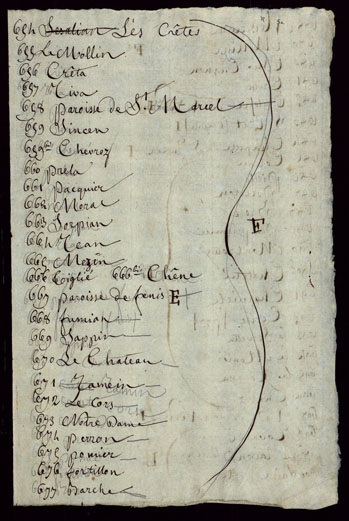 654 Les Crêtes
655 Le Mollin
656 Crêta
657 Tiva
658 Paroisse de St. Marcel
659 Sincen
659bis Chevroz
660
661 Pacquier
662 Moral
663
664 Jean
665 Mezin
666 666bis Chêne
667 Paroisse de fenis E
E
668 fumian
669 Sappin
670 Le Chateau
671
672 Le Cors
673 Notre Dame
674 Perron
675 Pomier
676 fortillon
677 Barche